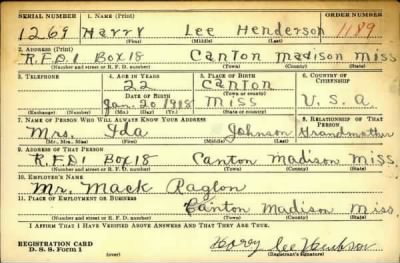 SERIAL NUMBER 1. NAME (Print) ORDER NUMBER
1269 Harry Lee Henderson 1189
(First) (Middle) (Last)
2. ADDRESS (Print)
R.F.D.1 Box 18 Canton Madison Miss
(Number and street or R. F. D. number) (Town) (County) (State)
3. TELEPHONE 4. AGE IN YEARS 5. PLACE OF BIRTH 6. COUNTRY OF CITIZENSHIP
22 Canton
DATE OF BIRTH (Town or county)
Jan. 20 1918 Miss U.S.A.
(Exchange) (Number) (Mo.) (Day) (Yr.) (State or country)
7. NAME OF PERSON WHO WILL ALWAYS KNOW YOUR ADDRESS 8. RELATIONSHIP OF THAT PERSON
Mrs. Ida Johnson Grandmother
(Mr., Mrs., Miss) (First) (Middle) (Last)
9. ADDRESS OF THAT PERSON
R.F.D1 Box 18 Canton Madison Miss.
(Number and street or R. F. D. number) (Town) (County) (State)
10. EMPLOYER'S NAME
Mr. Mack Raglon
11. PLACE OF EMPLOYMENT OR BUSINESS
Canton Madison Miss.
(Number and street or R. F. D. number) (Town) (County) (State)
I AFFIRM THAT I HAVE VERIFIED ABOVE ANSWERS AND THAT THEY ARE TRUE.
REGISTRATION CARD
D. S. S. Form 1 (Registrant's signature)